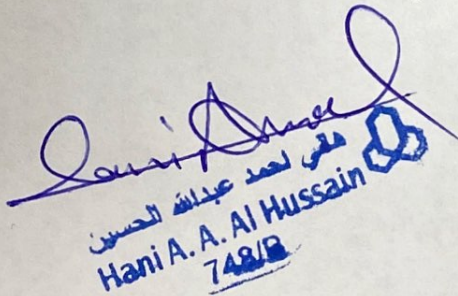 هاني احمد عبدالله الحسين
Hani A. A. Al Hussain
748/B